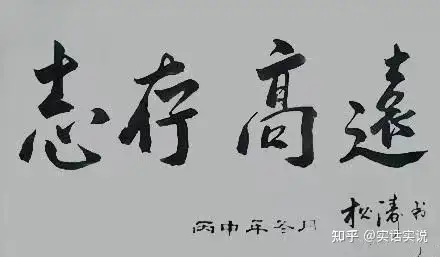 志存高遠
丙申年冬月
松涛书
知乎 @实话实说